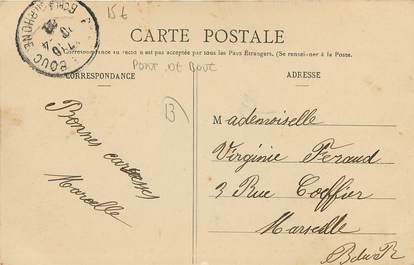 15€
BOUC
B. DU RHONE
CARTE POSTALE
Correspondance au recto n'est pas acceptée par tous les Pays Étrangers. (Se renseigner à la Poste.
CORRESPONDANCE
PORT DE BOUC
ADRESSE
13
Bonnes caresses
Marcelle
Mademoiselle
Virginie Feraud
3 Rue Coeffier
Marseille
B du R